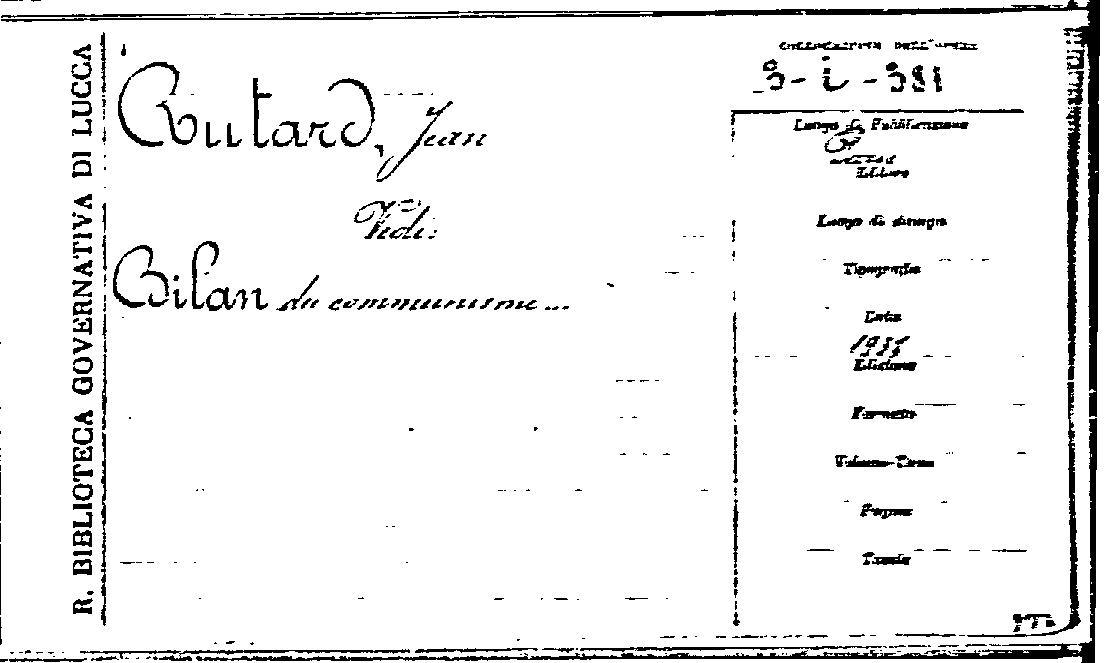 R. BIBLIOTECA GOVERNATIVA DI LUCCA
Rutard, Jean
Vedi:
Bilan du communisme...
COLLOCAZIONE DELL'OPERA
Luogo di Pubblicazione
Editore
Luogo di stampa
Tipografia
Data
Edizione
Formato
Volume-Tomo
Pagine
Tavole